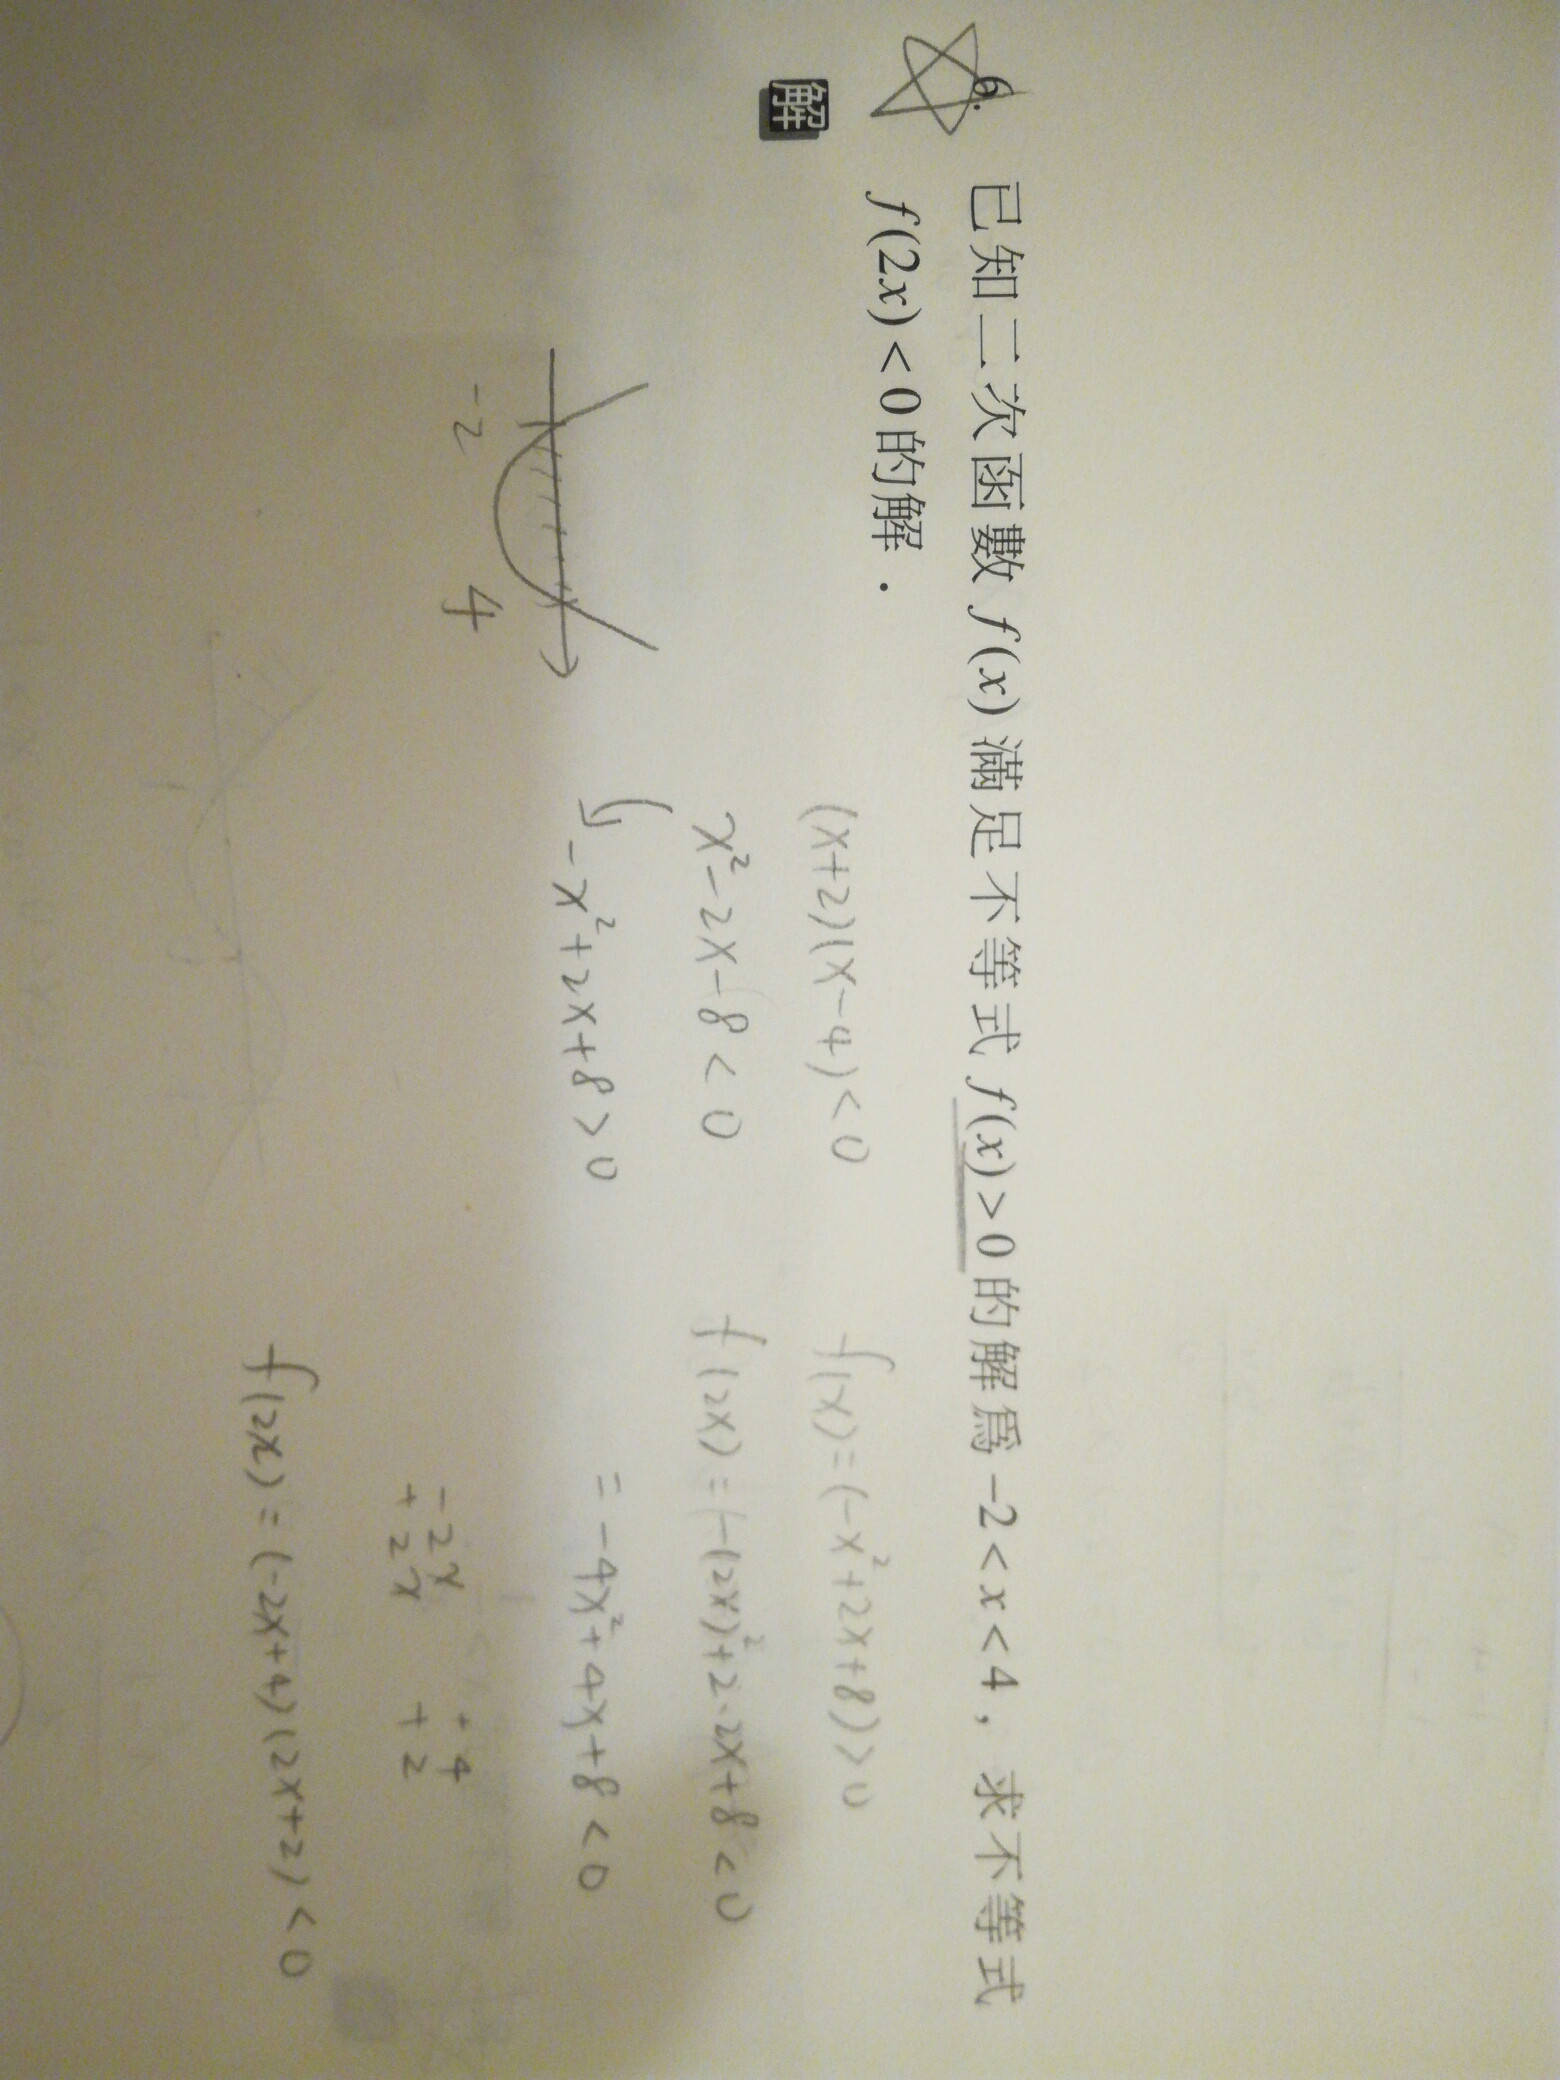 6. 已知二次函數 f(x) 滿足不等式 f(x)>0 的解爲 -2<x<4，求不等式
f(2x)<0 的解．
解
(x+2)(x-4)<0
x²-2x-8<0
-x²+2x+8>0
-2 4
f(x)=(-x²+2x+8)>0
f(2x)=(-(2x)²+2·2x+8<0
=-4x²+4x+8<0
-2x +4
+2x +2
f(2x)=(-2x+4)(2x+2)<0